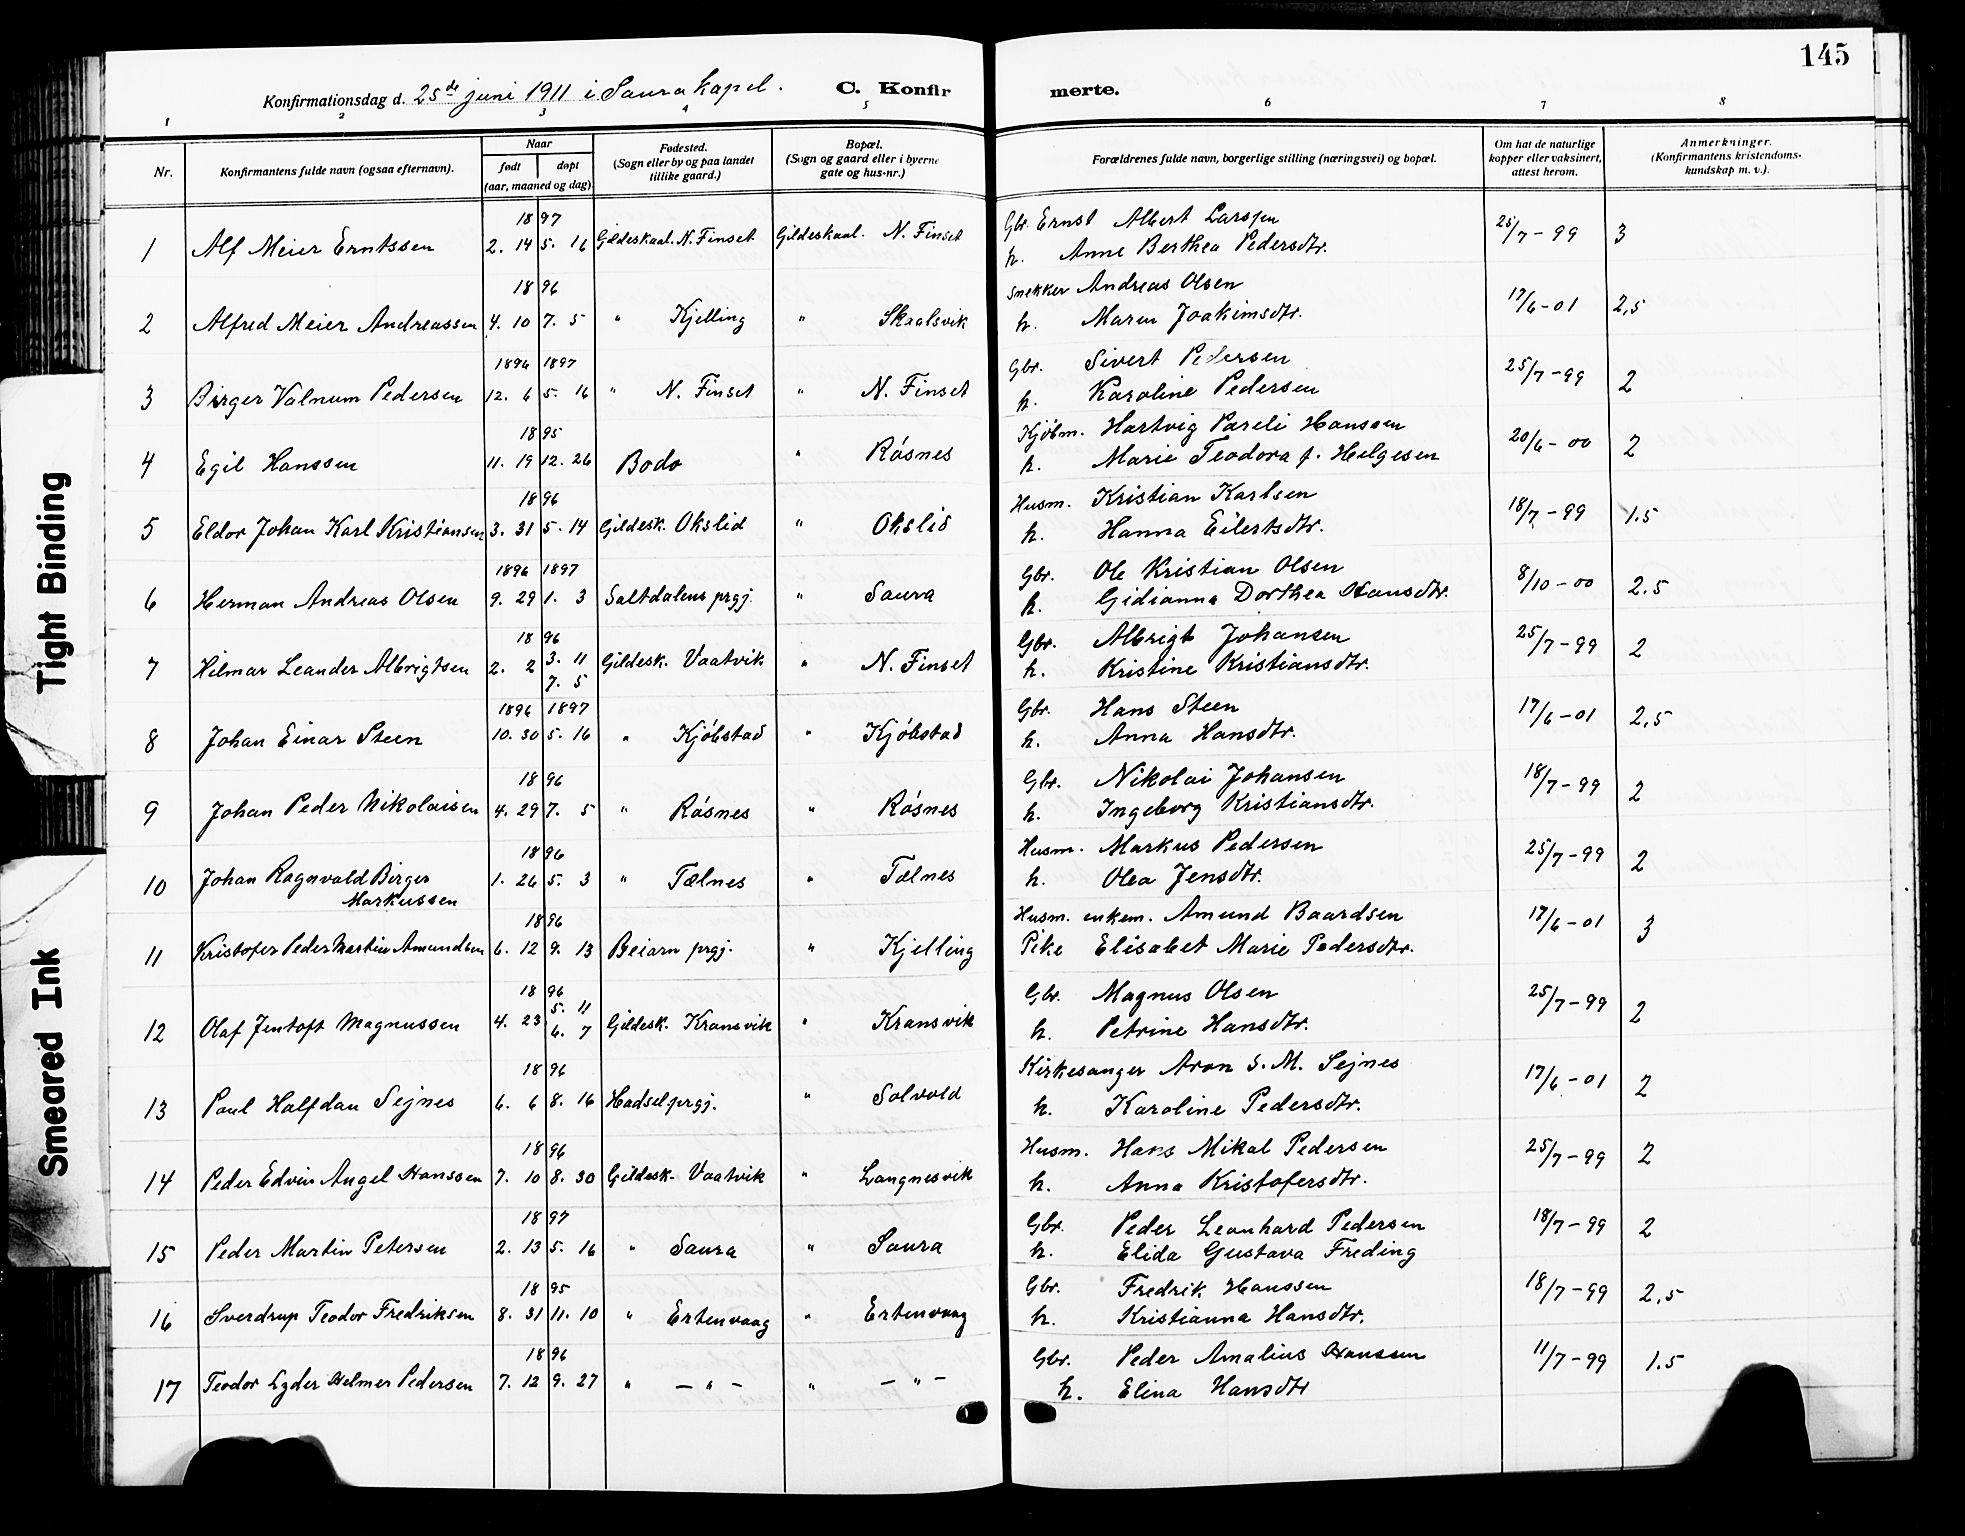 145
Konfirmationsdag d. 25de juni 1911 i Saura kapel. C. Konfirmerte.
1 2 3 4 5 6 7 8
Nr. Konfirmantens fulde navn (ogsaa efternavn). Naar født døpt (aar, maaned og dag) Fødested. (Sogn eller by og paa landet tillike gaard.) Bopæl. (Sogn og gaard eller i byerne gate og hus-nr.) Forældrenes fulde navn, borgerlige stilling (næringsvei) og bopæl. Om hat de naturlige kopper eller vaksinert, attest herom. Anmerkninger. (Konfirmantens kristendoms-kundskap m. v.).
1 Alf Meier Erntssen 1897 2. 14 5. 16 Gildeskaal. N. Finset Gildeskaal. N. Finset Gbr. Ernst Albert Larssen 25/7-99 3
h. Anne Berthea Pedersdtr.
2 Alfred Meier Andreassen 1896 4. 10 7. 5 " Kjelling " Skaalsvik Snekker Andreas Olsen 17/6-01 2,5
h. Maren Joakimsdtr.
3 Birger Valnum Pedersen 1896 1897 12. 6 5. 16 " N. Finset " N. Finset Gbr. Sivert Pedersen 25/7-99 2
h. Karoline Pedersen
4 Egil Hanssen 1895 11. 19 12. 26 Bodø " Røsnes Kjøbm. Hartvig Pareli Hanssen 20/6-00 2
h. Marie Teodora f. Helgesen
5 Eldor Johan Karl Kristiansen 1896 3. 31 5. 14 Gildesk. Okslid " Okslid Husm. Kristian Karlsen 18/7-99 1.5
h. Hanna Eilertsdtr.
6 Herman Andreas Olsen 1896 1897 9. 29 1. 3 Saltdalens prgj. " Saura Gbr. Ole Kristian Olsen 8/10-00 2.5
h. Gidianna Dorthea Hansdtr.
7 Hilmar Leander Albrigtsen 1896 2. 2 3. 11 7. 5 Gildesk. Vaatvik " N. Finset Gbr. Albrigt Johansen 25/7-99 2
h. Kristine Kristiansdtr.
8 Johan Einar Steen 1896 1897 10. 30 5. 16 " Kjøbstad " Kjøbstad Gbr. Hans Steen 17/6-01 2,5
h. Anna Hansdtr.
9 Johan Peder Nikolaisen 1896 4. 29 7. 5 " Røsnes " Røsnes Gbr. Nikolai Johansen 18/7-99 2
h. Ingeborg Kristiansdtr.
10 Johan Ragnvald Birger Markussen 1896 1. 26 5. 3 " Tælnes " Tælnes Husm. Markus Pedersen 25/7-99 2
h. Olea Jensdtr.
11 Kristofer Peder Martin Amundsen 1896 6. 12 9. 13 Beiarn prgj. " Kjelling Husm. enkem. Amund Baardsen 17/6-01 3
Pike Elisabet Marie Pedersdtr.
12 Olaf Jentoft Magnussen 1896 4. 23 5. 11 6. 7 Gildesk. Kransvik " Kransvik Gbr. Magnus Olsen 25/7-99 2
h. Petrine Hansdtr.
13 Paul Halfdan Sejnes 1896 6. 6 8. 16 Hadsel prgj. " Solvold Kirkesanger Aron S. M. Sejnes 17/6-01 2
h. Karoline Pedersdtr.
14 Peder Edvin Angel Hanssen 1896 7. 10 8. 30 Gildesk. Vaatvik " Langnesvik Husm. Hans Mikal Pedersen 25/7-99 2
h. Anna Kristofersdtr.
15 Peder Martin Petersen 1897 2. 13 5. 16 " Saura " Saura Gbr. Peder Leonhard Pedersen 18/7-99 2
h. Elida Gustava Freding
16 Sverdrup Teodor Fredriksen 1895 8. 31 11. 10 " Ertenvaag " Ertenvaag Gbr. Fredrik Hanssen 18/7-99 2,5
h. Kristianna Hansdtr.
17 Teodor Lyder Helmer Pedersen 1896 7. 12 9. 27 " - " - " - " - Gbr. Peder Amalius Hanssen 11/7-99 1.5
h. Elina Hansdtr
Tight Binding
Smeared Ink